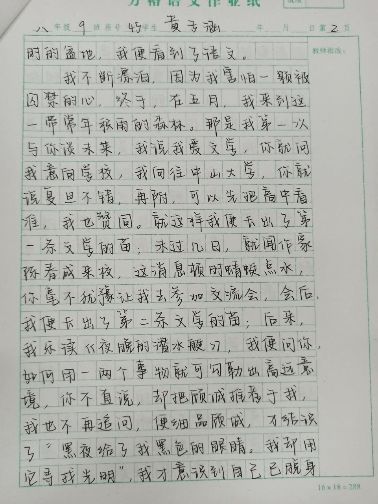 方格语文作业纸
八年级 9 班座号 45 学生 黄子涵 年 月 日第 2 页
教师批改:
的的盆地,我便看到了语文。
我不断漂泊,因为我害怕一颗被
囚禁的心。终于,在五月,我来到这
一带常年积雨的森林。那是我第一次
与你谈未来,我说我爱文学,你就问
我意向学校,我向往中山大学,你就
说复旦不错,再附,可以先把高中看
准,我也赞同。就这样我便长出了第
一条文学的苗,未过几日,就闻作家
陈春成来校,这消息顿的蜻蜓点水,
你毫不犹豫让我去参加交流会,会后,
我便长出了第二条文学的苗;后来,
我乐读《夜晚的潜水艇》,我便问你,
如何用一两个事物就可勾勒出高远意
境,你不直说,却把顾城推荐于我,
我也不再追问,便细品顾城,才结识
了“黑夜给了我黑色的眼睛,我却用
它寻找光明”,我才意识到自己已脱身
16×18=288